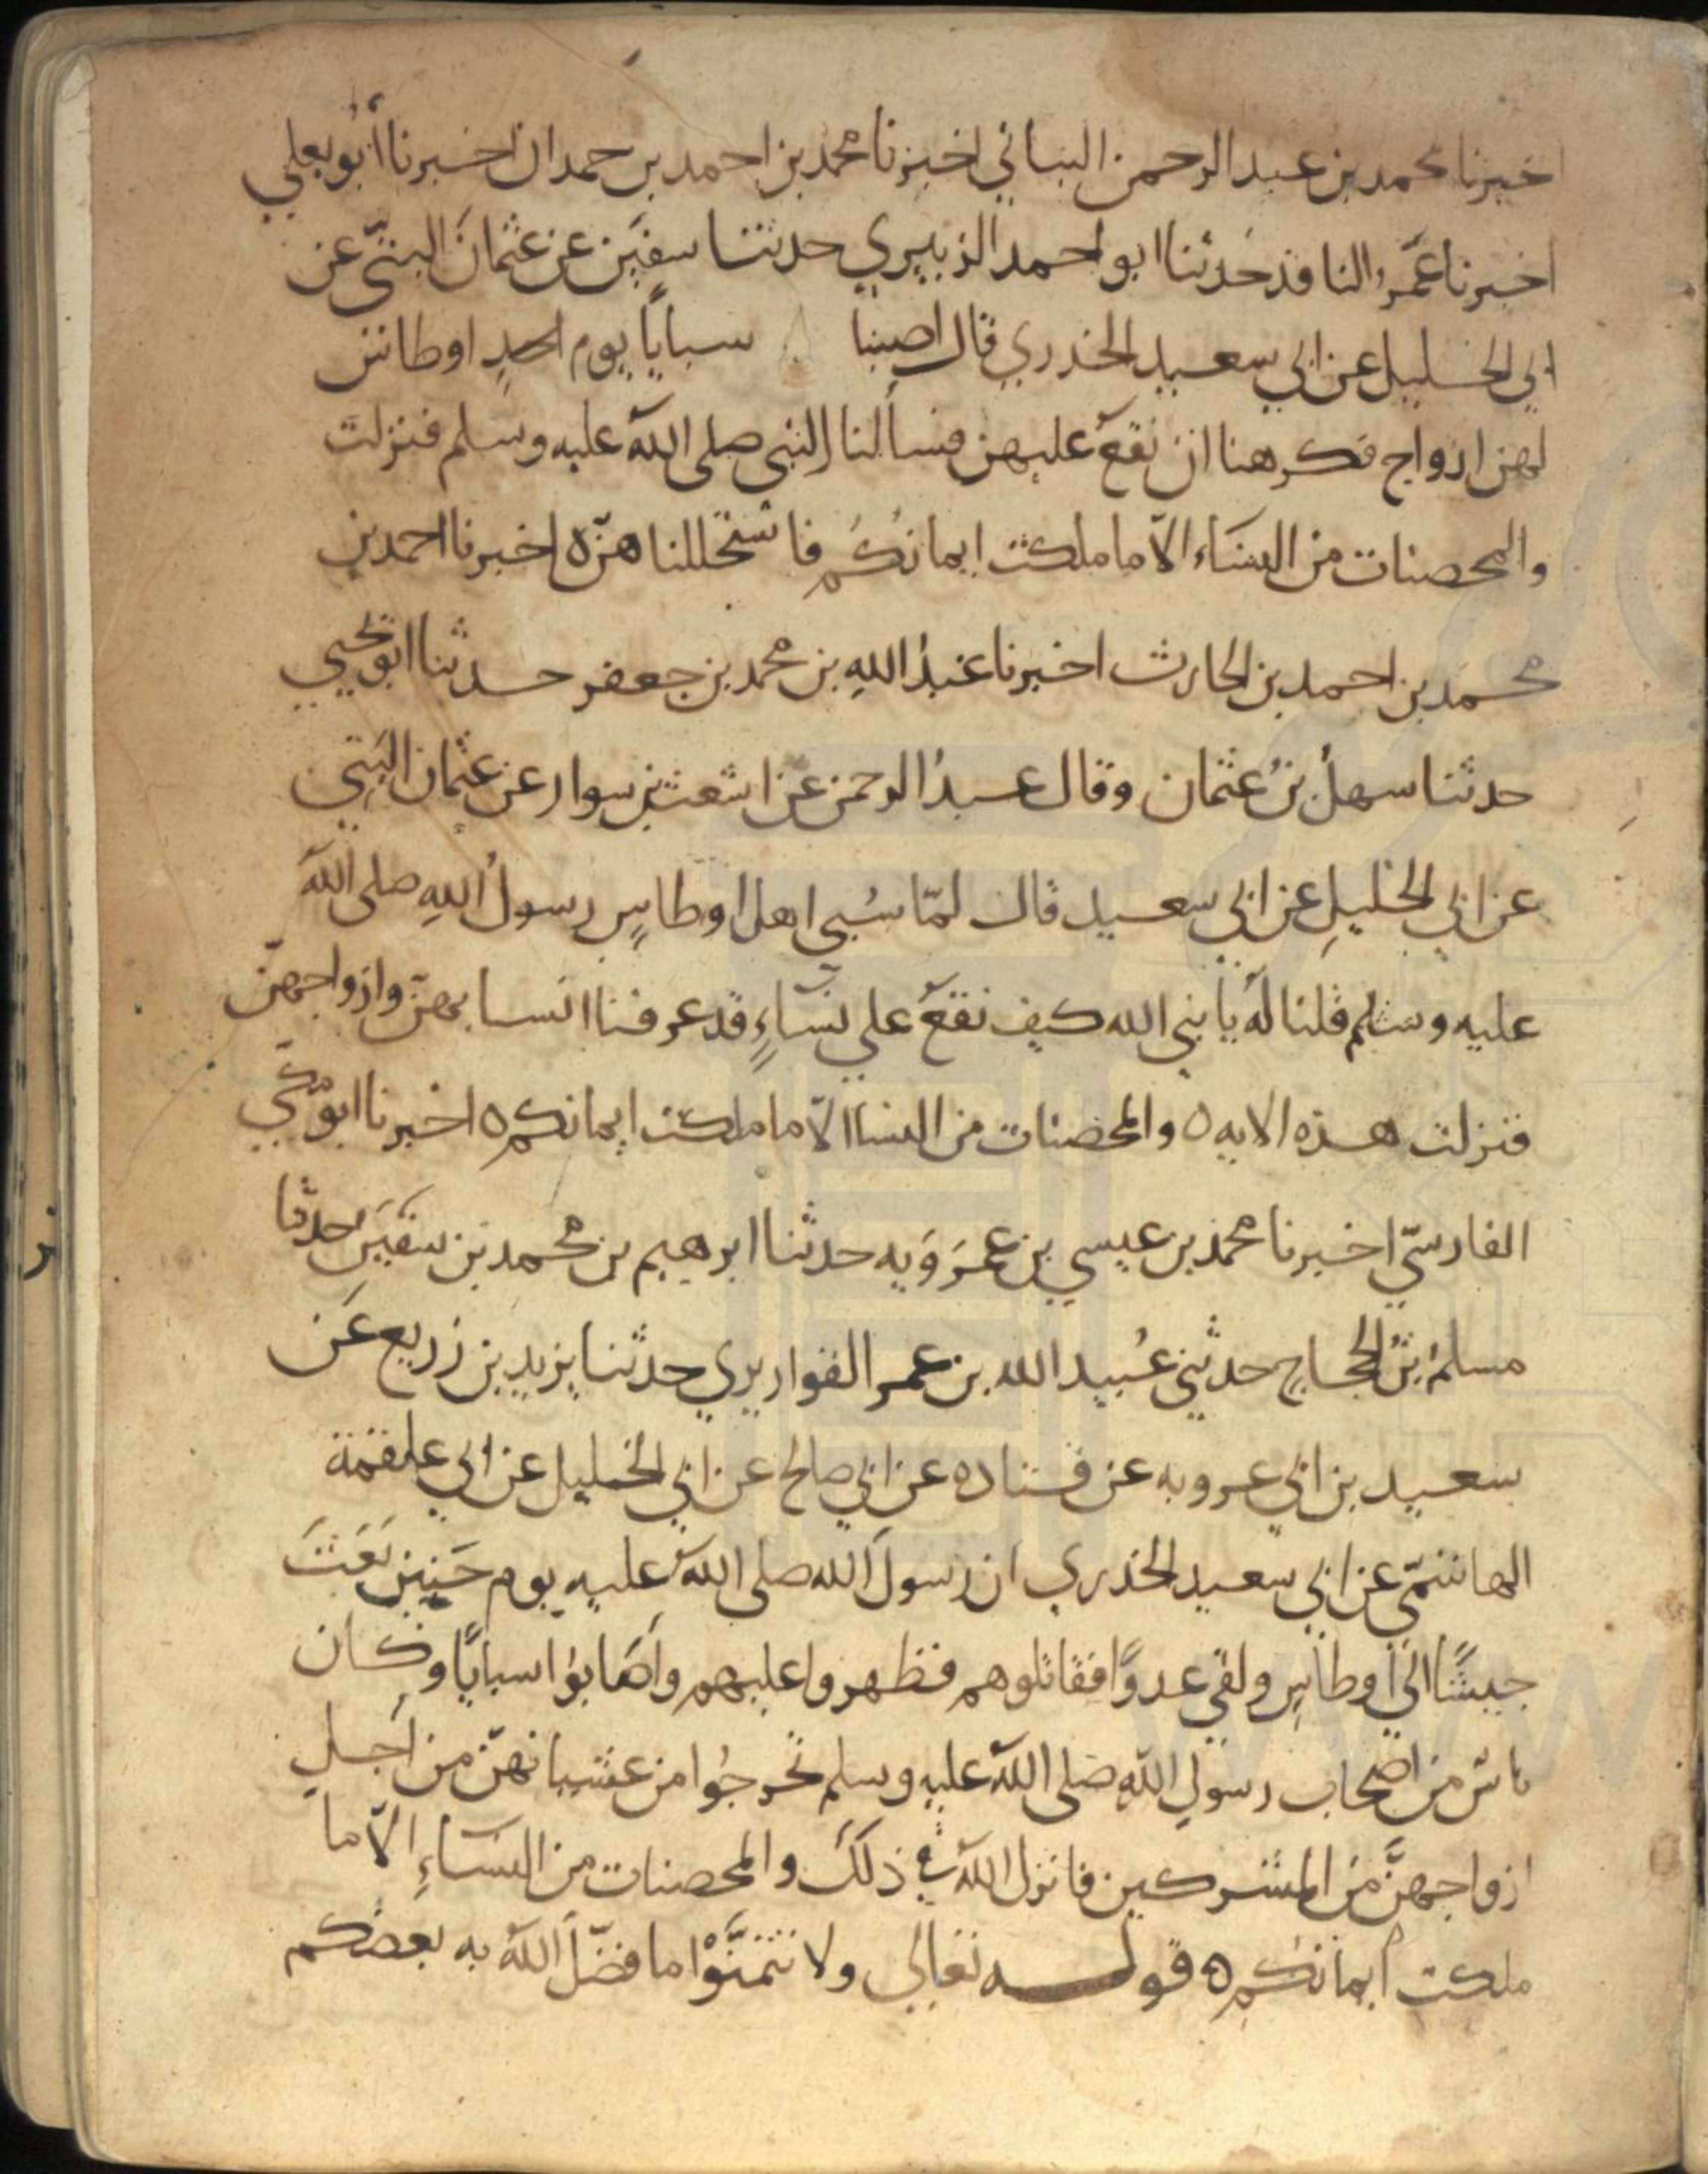 اخبرنا محمد بن عبد الرحمن البناني اخبرنا محمد بن احمد بن حمدان اخبرنا أبو يعلي
اخبرنا عَمرو الناقد حدثنا ابو احمد الزبيري حدثنا سفيَن عن عثمانَ البتّي عن
ابي الخليل عن ابي سعيد الخدري قال اصبنا سبايًا يوم احدٍ اوطاس
لهن ازواج فكرهنا ان نقع عليهن فسألنا النبي صلى الله عليه وسلم فنزلت
والمحصنات من النساء الاّ ما ملكت ايمانكم فاستحللناهنّ ه اخبرنا احمد بن
محمد بن احمد بن الحارث اخبرنا عبدُ اللهِ بن محمد بن جعفر حدثنا ابو يحيي
حدثنا سهلُ بنُ عثمان وقال عبدُ الرحمن عن اشعث بن سوار عن عثمان البَتِي
عن ابي الخليلِ عن ابي سعيد قال لمّا سُبي اهل اوطاسٍ رسولُ اللهِ صلى الله
عليه وسلم قلنا لهُ يا نبي الله كيف نقعُ علي نسَاءٍ قد عرفنا انسابهنّ وازواجهنّ
فنزلت هذه الايه ه والمحصنات من النسا الاّ ما ملكت ايمانكم ه اخبرنا ابو مكّي
الفارسيّ اخبرنا محمد بن عيسي بن عمرَوَيه حدثنا ابرهيم بن محمد بن سفيَن حدثنا
مسلمُ بنُ الحجاج حدثني عُبيد الله بن عمر القواريري حدثنا يزيد بن زريع عَن
سعيد بن ابي عروبه عن قتاده عن ابي صالح عن ابي الخليل عن ابي علقمة
الهاشمّي عن ابي سعيد الخدري ان رسولَ الله صلى الله عليه يوم حَنين بَعَثَ
جيشًا الي أوطاسٍ ولقي عدوًّا فقاتلوهم فظهروا عليهم وأصَابوُا سبايًا وكان
ناسٌ من اصحاب رسولِ اللهِ صَلى اللهُ عليه وسلم تحرجُوا من غشيانهنّ من اَجلِ
ازواجهنَّ من المشركين فانزل اللهُ في ذلكَ والمحصنات من النسَاءِ الاّ ما
ملكت أيمانكم ه قولـــه تعالي ولا تتمنَّوْا ما فضّلَ اللهُ به بعضكم